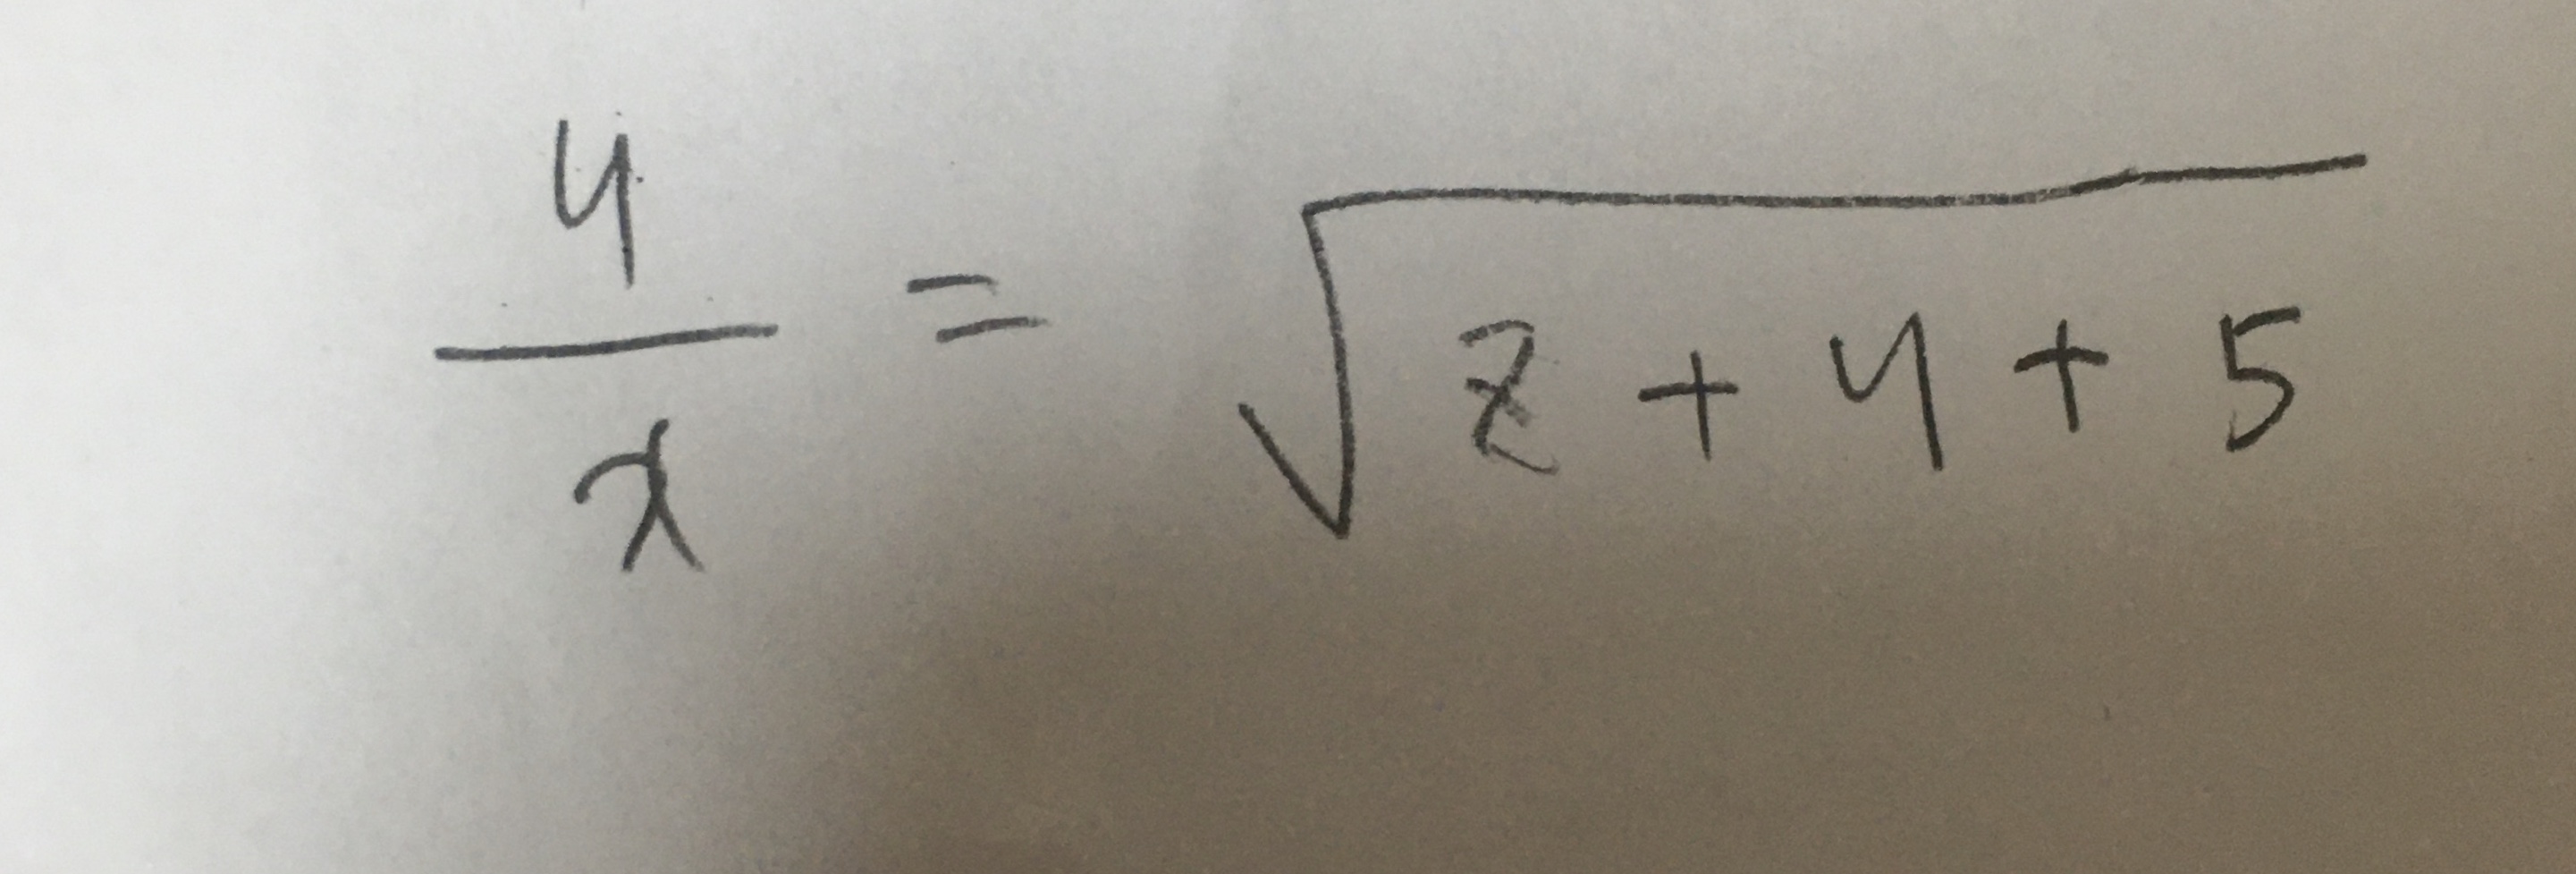 y/x = √(z + y + 5)